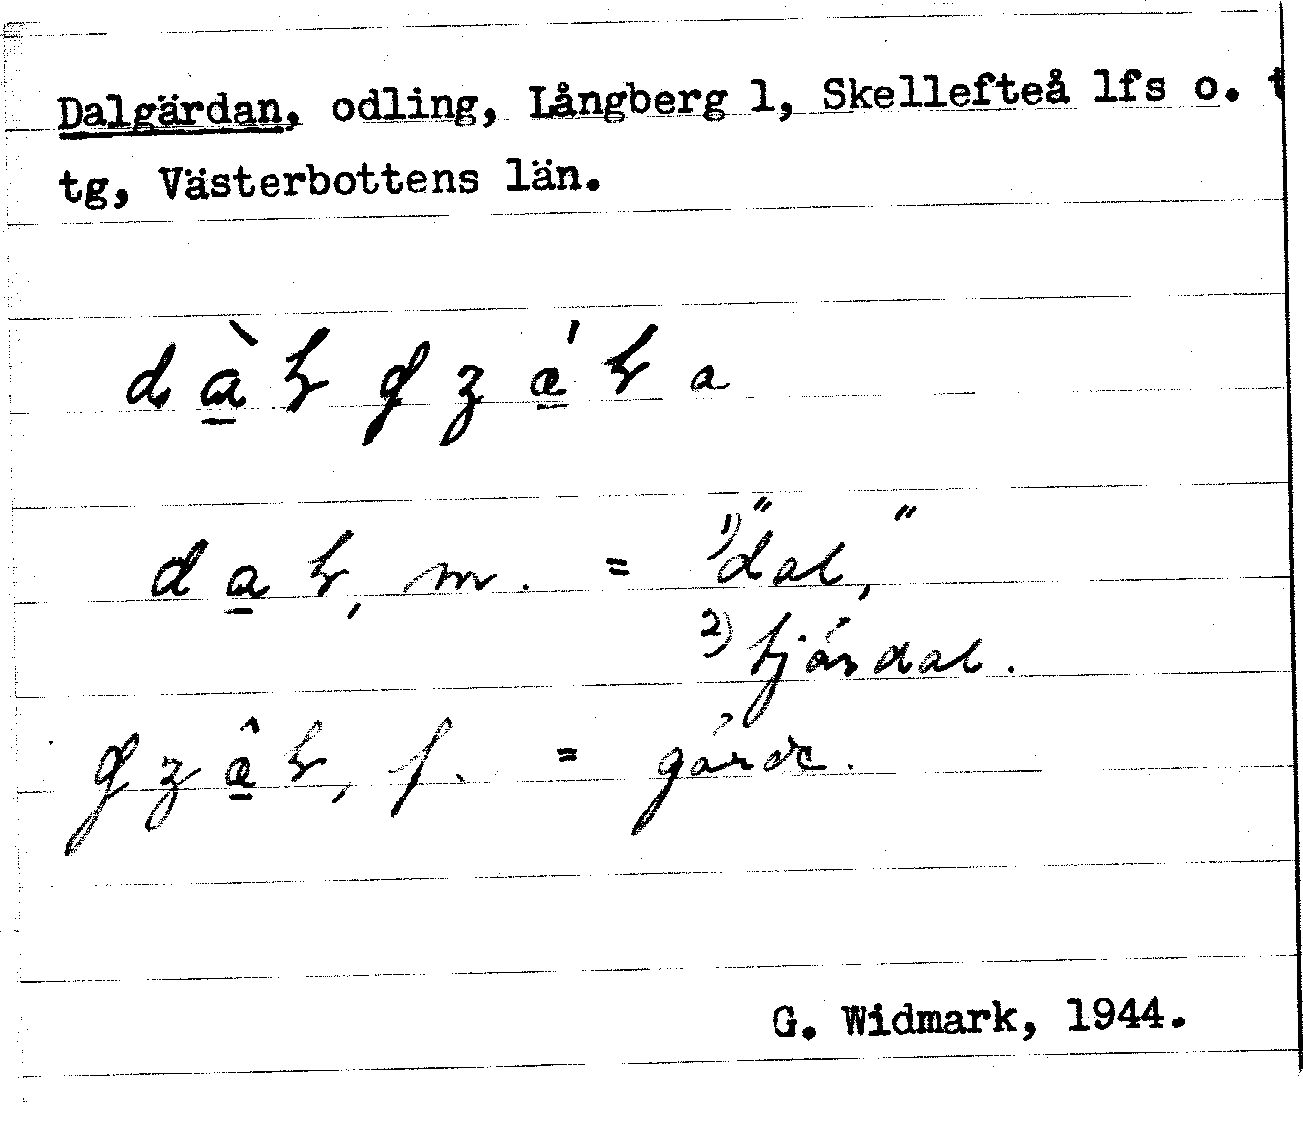 Dalgärdan, odling, Långberg 1, Skellefteå lfs o. t
tg, Västerbottens län.
m. = 1) "dal,"
2) tjärdal.
f. = gärde.
G. Widmark, 1944.